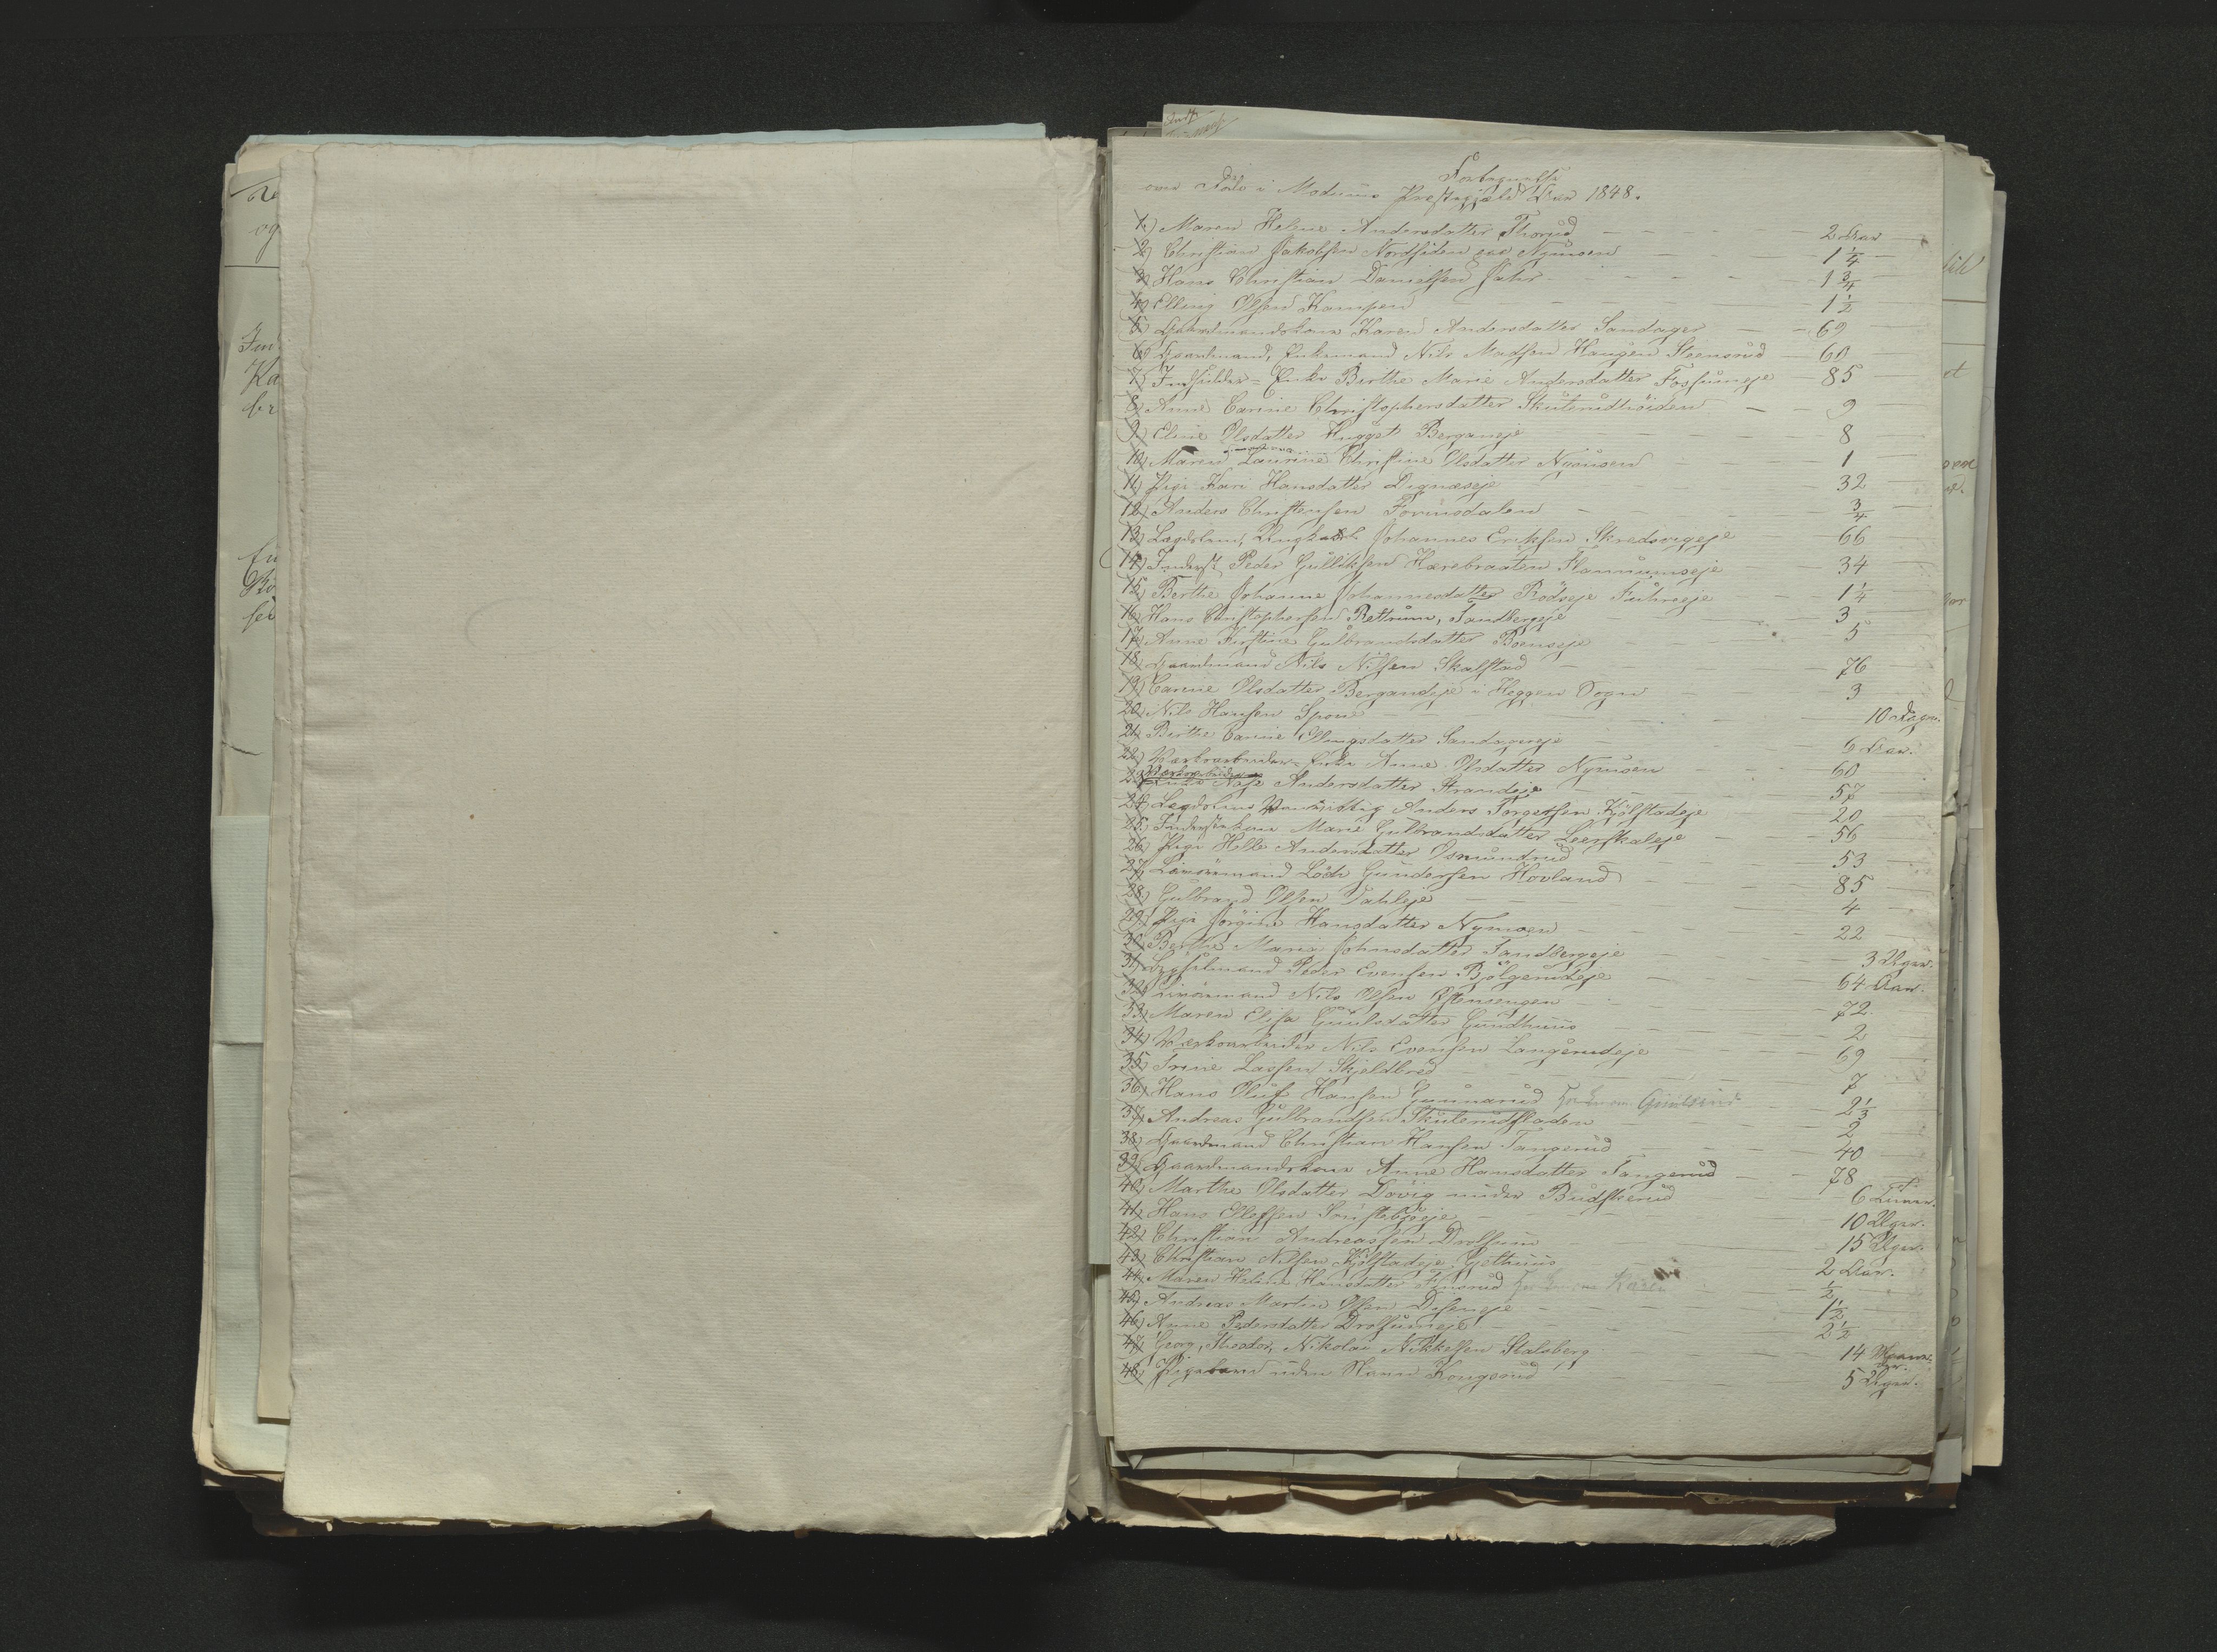 Fortegnelse
over Døde i Modums Præstegjeld Aar 1848.
1) Maren Helene Andersdatter Thorud - 2 Aar
2) Christian Jakobsen Nordsiden Nymoen - 1 1/4
3) Hans Christian Danielsen Fahr - 1 3/4
4) Elling Olsen Kampen - 1 1/2
5) Gaardmandskone Karen Andersdatter Sandager - 69
6) Gaardmand, Enkemand Nils Madsen Haugen Steensrud - 60
7) Indsidder-Enke Birthe Marie Andersdatter Fossumeje - 85
8) Anne Carine Christophersdatter Skuterudhøiden - 9
9) Eline Olsdatter Hugget Berganeje - 8
10) Maren Laurine Christine Olsdatter Nymoen - 1
11) Pige Kari Hansdatter Dignæseje - 32
12) Anders Christensen Forünsdalen - 3/4
13) Lægdslem, Ungkarl Johannes Eriksen Skredsvigeje - 66
14) Inderst Peder Gulliksen Harebraaten Flannumseje - 34
15) Berthe Johanne Johannesdatter Rødseje - 1 1/4
16) Hans Christophersen Rettrum, Sandbergeje - 3
17) Anne Kirstine Gulbrandsdatter Böenseje - 5
18) Gaardmand Nils Nilsen Skalstad - 76
19) Carine Olsdatter Berganeje i Heggen Sogn - 3
20) Nils Hansen Spone - 10 Dage.
21) Birthe Carine Ellingsdatter Sandagereje - 6 Aar.
22) Værksarbeider-Enke Anne Olsdatter Nymoen - 60
23) Enke Andersdatter Strandeje - 57
24) Lægdslem Vanvittig Anders Torgersen Kjölstadeje - 20
25) Inderstkone Marie Gulbrandsdatter Leerskaleje - 56
26) Pige Helle Andersdatter Osmundrud - 53
27) Livöremand Gundersen Hovland - 85
28) Gulbrand Olsen Dahleje - 4
29) Pige Jörgine Hansdatter Nymoen - 22
30) Berthe Marie Johnsdatter Sandbergeje - 3 Uger.
31) Peder Evensen Bjölgerudeje - 64 Aar.
32) Livöremand Nils Olsen Stensengen - 72
33) Maren Elise Guulsdatter Gundhuus - 2
34) Værksarbeider Nils Evensen Langerudeje - 69
35) Trine Lassen Skjeldbred - 7
36) Hans Oluf Hansen Gunnarud - 2 1/3
37) Andreas Gulbrandsen Skuterudfladen - 2
38) Gaardmand Christian Hansen Tangerud - 40
39) Gaardmandskone Anne Hansdatter Tangerud - 78
40) Marthe Olsdatter Dövig under Budskerud - 6 Timer.
41) Hans Ellefsen - 10 Uger.
42) Christian Andreassen Drolsum - 15 Uger.
43) Christian Nilsen Kjölstadeje Gjethuus - 2 Aar.
44) Maren Helene Hansdatter Finsrud - 1/2
45) Andreas Martin Olsen Diseneje - 1 1/2
46) Anne Pedersdatter Drolsumeje - 2 1/2
47) Georg, Theodor, Nikolai Nikkelsen Stalsberg - 14
48) Pigebarn uden Navn Kongsrud - 5 Uger.